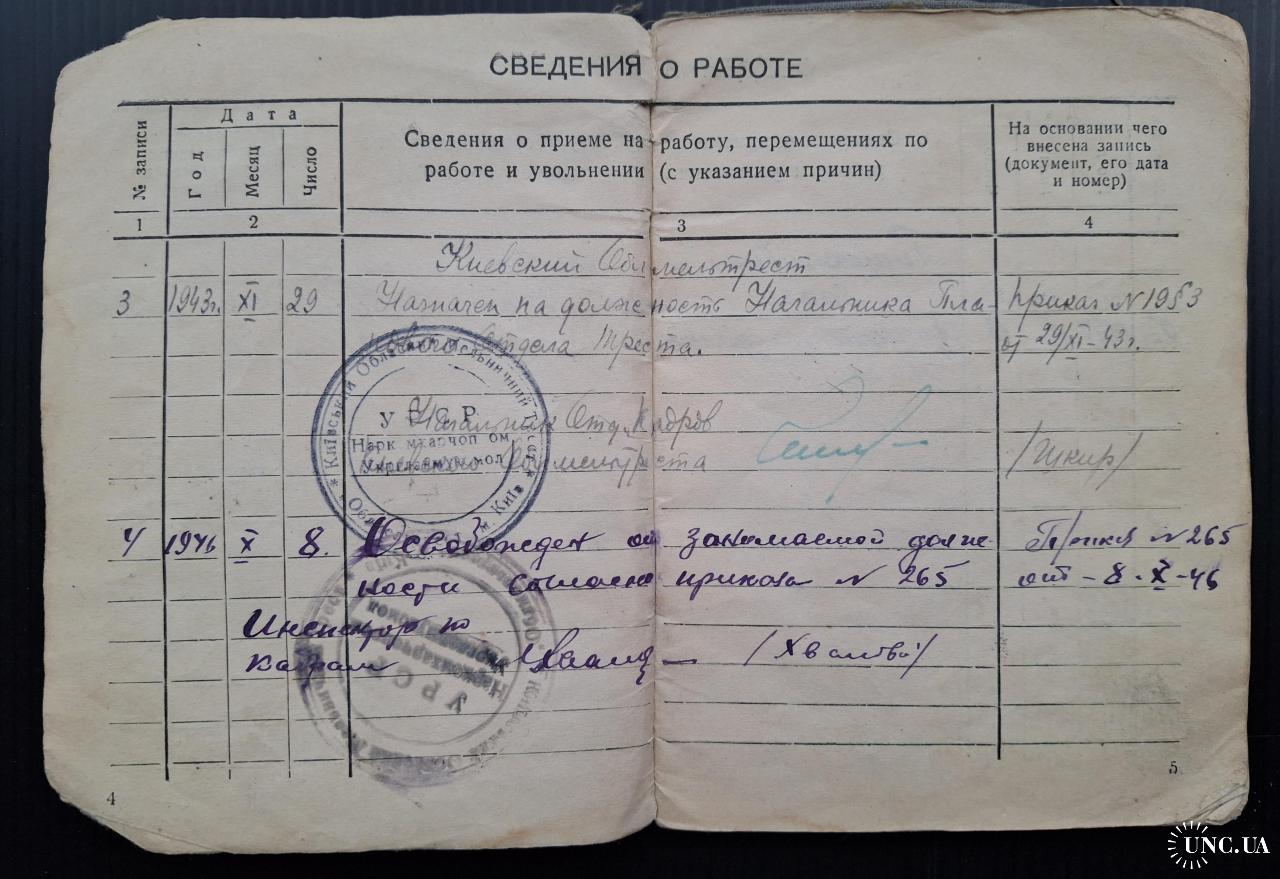 СВЕДЕНИЯ О РАБОТЕ
№ записи
Дата
Год
Месяц
Число
Сведения о приеме на работу, перемещениях по
работе и увольнении (с указанием причин)
На основании чего
внесена запись
(документ, его дата
и номер)
1 2 3 4
Киевский Облмельтрест
3 1943г. XI 29 Назначен на должность Начальника Пла- Приказ N 1953
нового Отдела Треста. от 29/XI-43 г.
Начальник Отд. Кадров
Киевского Облмельтреста /Шкир/
Київський Обласний Мельничний Трест
м. Київ
У Р С Р
Нарк
4 1946 X 8. Освобожден от занимаемой долж Приказ N 265
ности согласно приказа N 265 от - 8 - X - 46
Инспектор по
кадрам
У Р С Р
4
5
UNC.UA